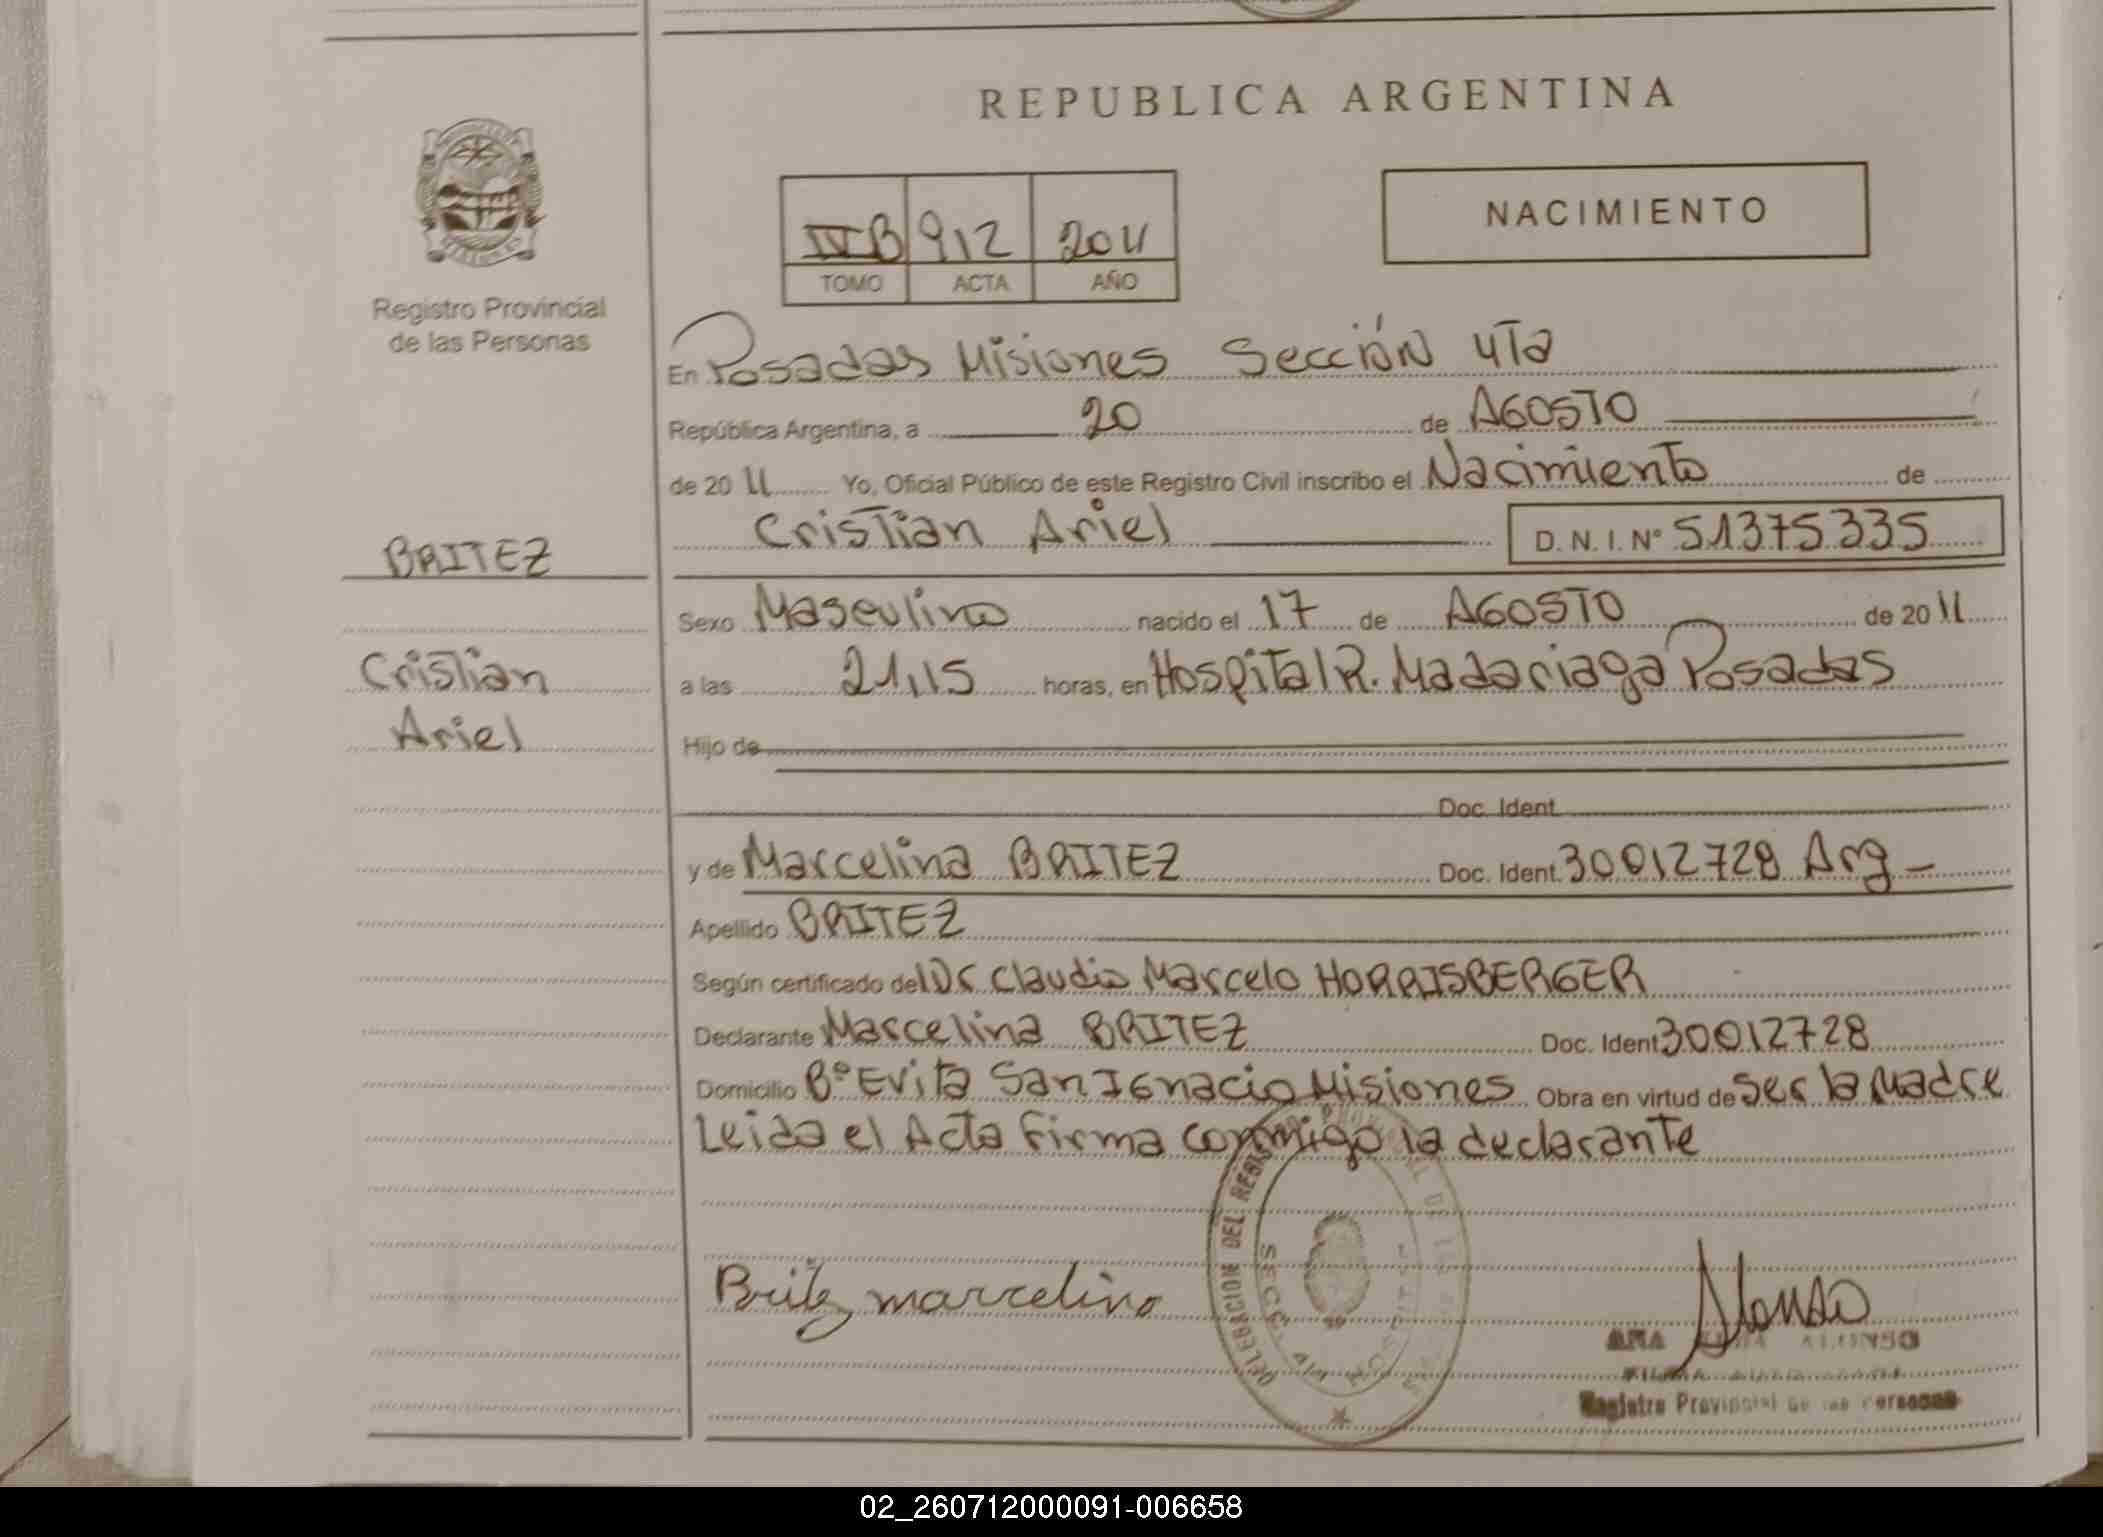 REPUBLICA ARGENTINA
NACIMIENTO
IVB 912 2011
TOMO ACTA AÑO
Registro Provincial
de las Personas
En Posadas Misiones Sección 4ta
República Argentina, a 20 de AGOSTO
de 20 11 Yo, Oficial Público de este Registro Civil inscribo el Nacimiento de
Cristian Ariel D.N.I. Nº 51375335
BRITEZ
Cristian
Ariel
Sexo Masculino nacido el 17 de AGOSTO de 20 11
a las 21,15 horas, en Hospital R. Madariaga Posadas
Hijo de
Doc. Ident.
y de Marcelina BRITEZ Doc. Ident. 30012728 Arg
Apellido BRITEZ
Según certificado del Dr Claudio Marcelo HORRISBERGER
Declarante Marcelina BRITEZ Doc. Ident 30012728
Domicilio Bº Evita San Ignacio Misiones Obra en virtud de Ser la Madre
Leida el Acta Firma conmigo la declarante
DELEGACION DEL REGIS
SECC. 4ta
Britez marcelina
Alonso
ANA ALONSO
Registro Provincial de las Personas
02_260712000091-006658